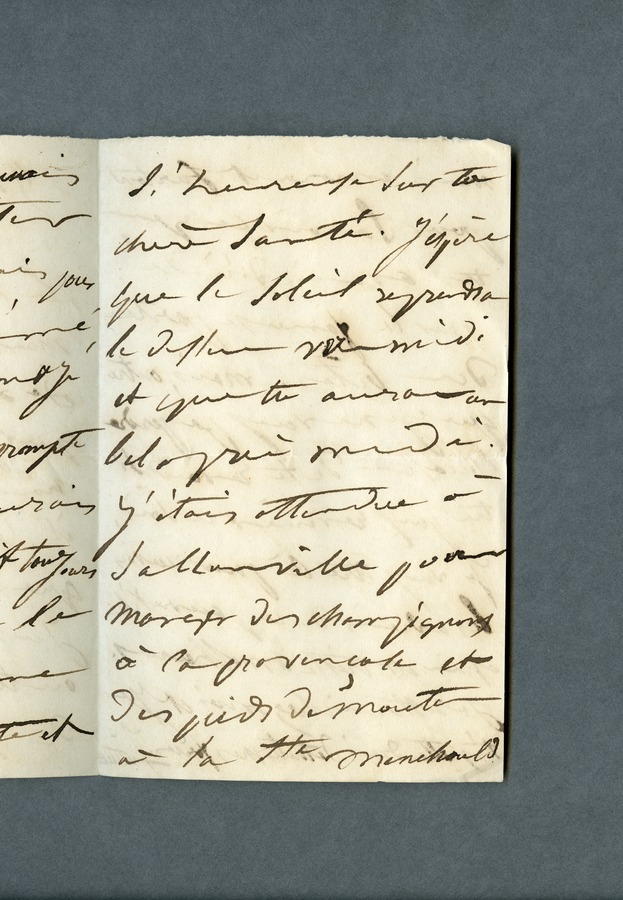 uvais
ten
ais pour
mé,
prompte
urais
it toujours
le
me
te et
S'heureuse sur ta
chère Santé. J'éspère
que le Soleil reprendra
le dessus vers midi
et que tu auras un
bel après midi.
J'étais attendue à
Sallonville pour
manger des champignons
à la provençale et
des pieds de mouton
à la Ste Menehould